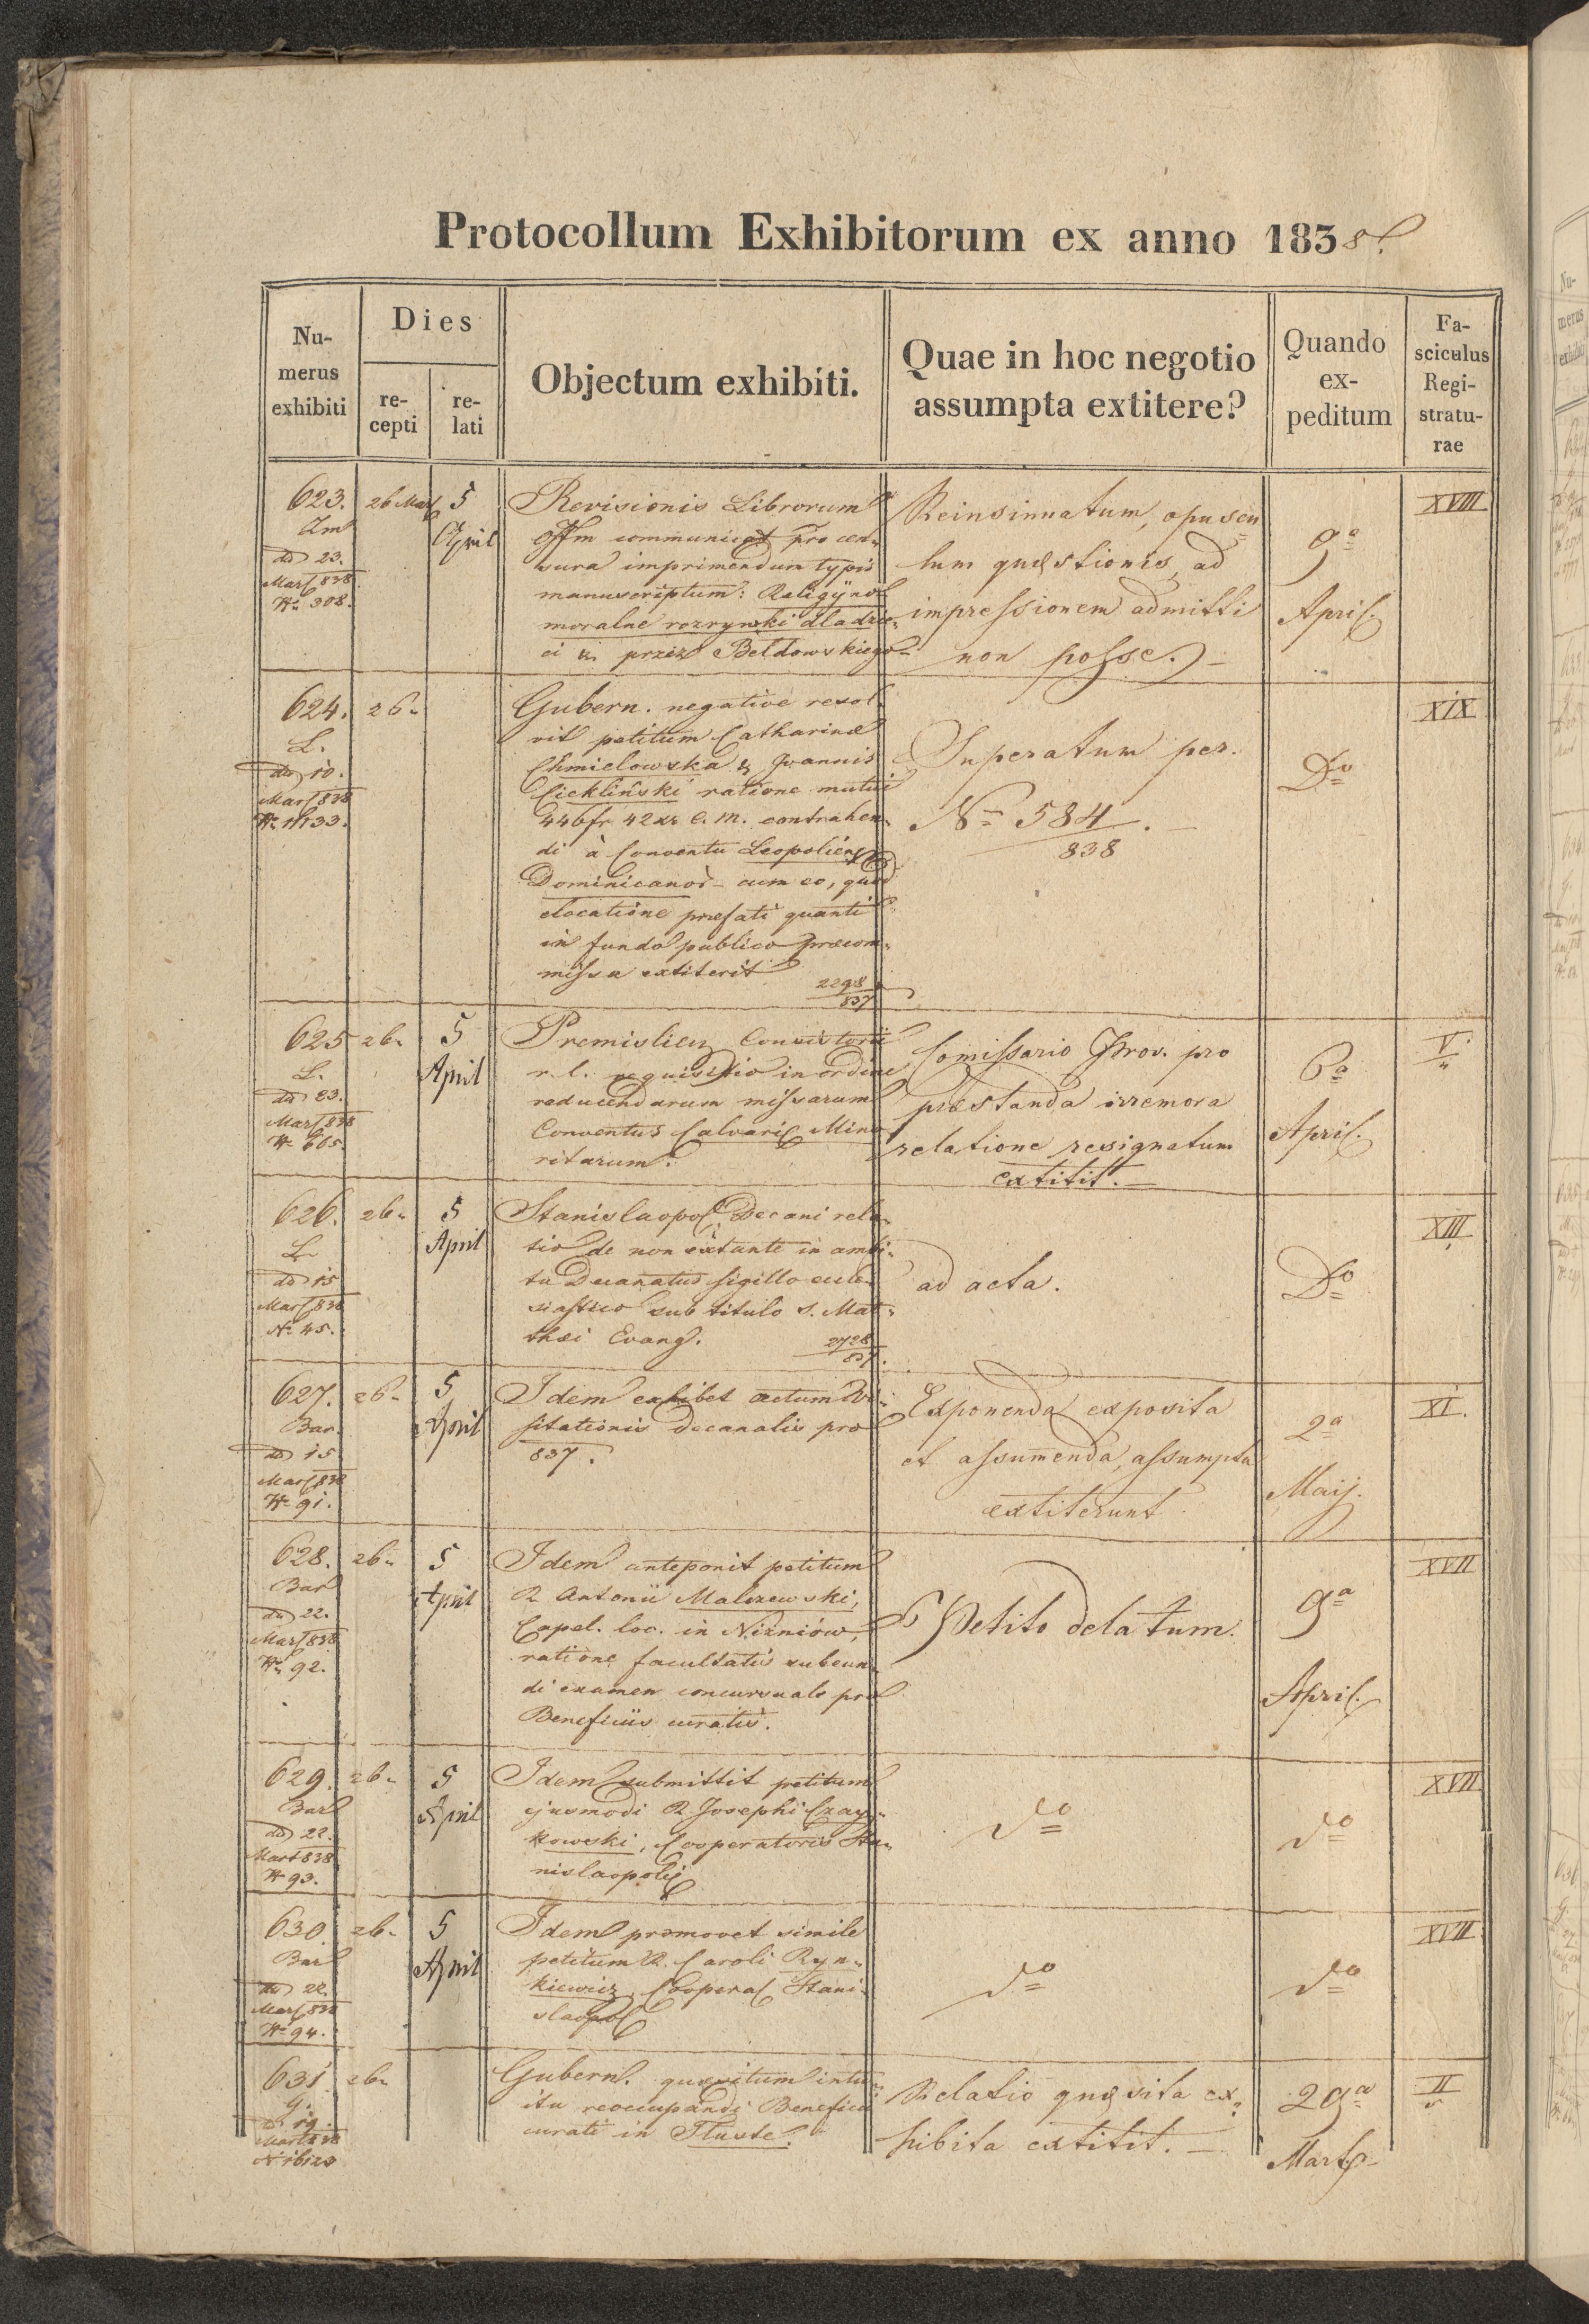 Protocollum Exhibitorum ex anno 1838.
Nu-
merus
exhibiti
Dies
re-
cepti
re-
lati
Objectum exhibiti.
Quae in hoc negotio
assumpta extitere?
Quando
ex-
peditum
Fa-
sciculus
Regi-
stratu-
rae
623.
dd 23.
Mart 838
Nr 308.
26 Mart
5
April
Revisionis Librorum
Offm communicat pro cen-
sura imprimendum typis
manuscriptum: Religijno
moralne rozrywki dla dzie-
ci przez Bełdowskiego
Reinsinuatum, opuscu
lum quæstionis, ad
impressionem admitti
non posse.
9a
April.
XVIII
624.
L.
dd 10.
Mart 838
26
Gubern. negative resol
vit petitum Catharinæ
Chmielowska & Joannis
Ciekliński ratione mutui
446 fr 42 xr C. M. contrahen-
di à Conventu Leopoliens
Dominicanor cum eo, quod
elocatione præfati quanti
in fundo publico præcom-
missa extiterit
2298
837
Superatum per.
Nr 584.
838
Do
XIX
625
L.
dd 23.
Mart 838
N 665.
26
5
April
Premislien Consistorii
r. l. requisitio in ordine
reducendarum missarum
Conventus Calvariæ Mino
ritarum.
Comissario Prov. pro
præstanda irremora
relatione resignatum
extitit.
6a
April.
V
626.
L.
dd 15
Mart 838
Nr 45.
26
5
April
Stanislaopol. Decani rela-
tio de non extante in ambi-
tu Decanatus sigillo eccle-
siastico sub titulo S. Mat-
thæi Evang.
2728
837.
ad acta.
Do
XIII
627.
Bar.
dd 15
Mart 838
Nr 91.
26
5
April
Idem exhibet actum Vi-
sitationis decanalis pro
837.
Exponenda exposita
et assumenda, assumpta
extiterunt
2a
Maij.
XI.
628.
Bar
dd 22.
Mart 838
Nr 92.
26
5
April
Idem anteponit petitum
R Antonii Malczewski,
Capel. loc. in Niżniów,
ratione facultatis subeun-
di examen concursuale pro
Beneficiis curatis.
Petito delatum.
9a
April.
XVII
629.
Bar
dd 22.
Mart 838
N 93.
26
5
April
Idem submittit petitum
ejusmodi R. Josephi Czay-
kowski, Cooperatoris Sta-
nislaopolij
do
do
XVII
630.
Bar
dd 22.
Mart 838
Nr 94.
26
5
April
Idem promovet simile
petitum R. Caroli Ryn-
kiewicz Cooperat Stani-
slaopol
do
do
XVII
631.
G.
d. 19.
Mart 838
26
Gubern. quæsitum intu-
itu reoccupandi Beneficii
curati in Tłuste.
Relatio quæsita ex-
hibita extitit.
29a
Mart
II